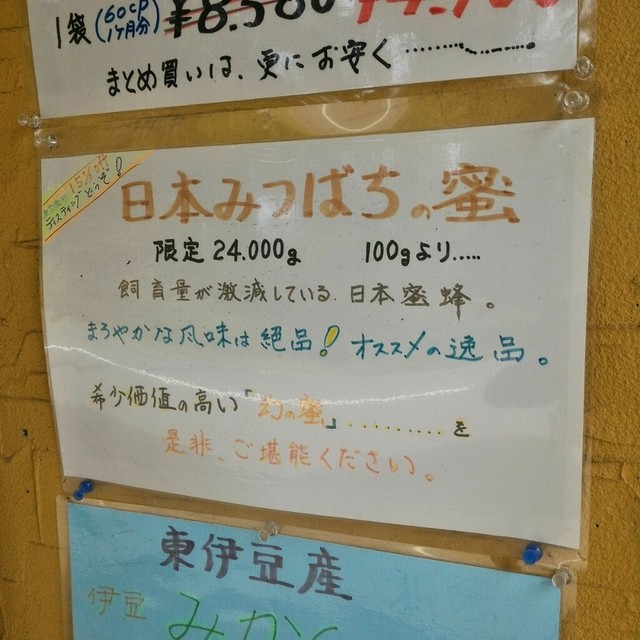 1袋(60cP 1ヶ月分) ¥8.580
まとめ買いは、更にお安く
ティスティングどうぞ!
日本みつばちの蜜
限定 24.000g 100gより.....
飼育量が激減している日本蜜蜂。
まろやかな風味は絶品! オススメの逸品。
希少価値の高い「幻の蜜」..........を
是非、ご堪能ください。
東伊豆産
伊豆